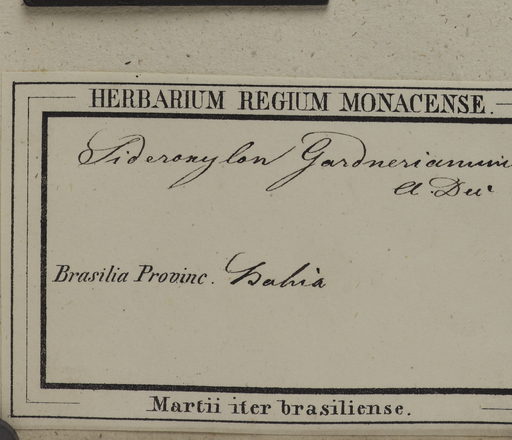 HERBARIUM REGIUM MONACENSE.
Sideroxylon Gardnerianum
A. Dec
Brasilia Provinc. Bahia
Martii iter brasiliense.